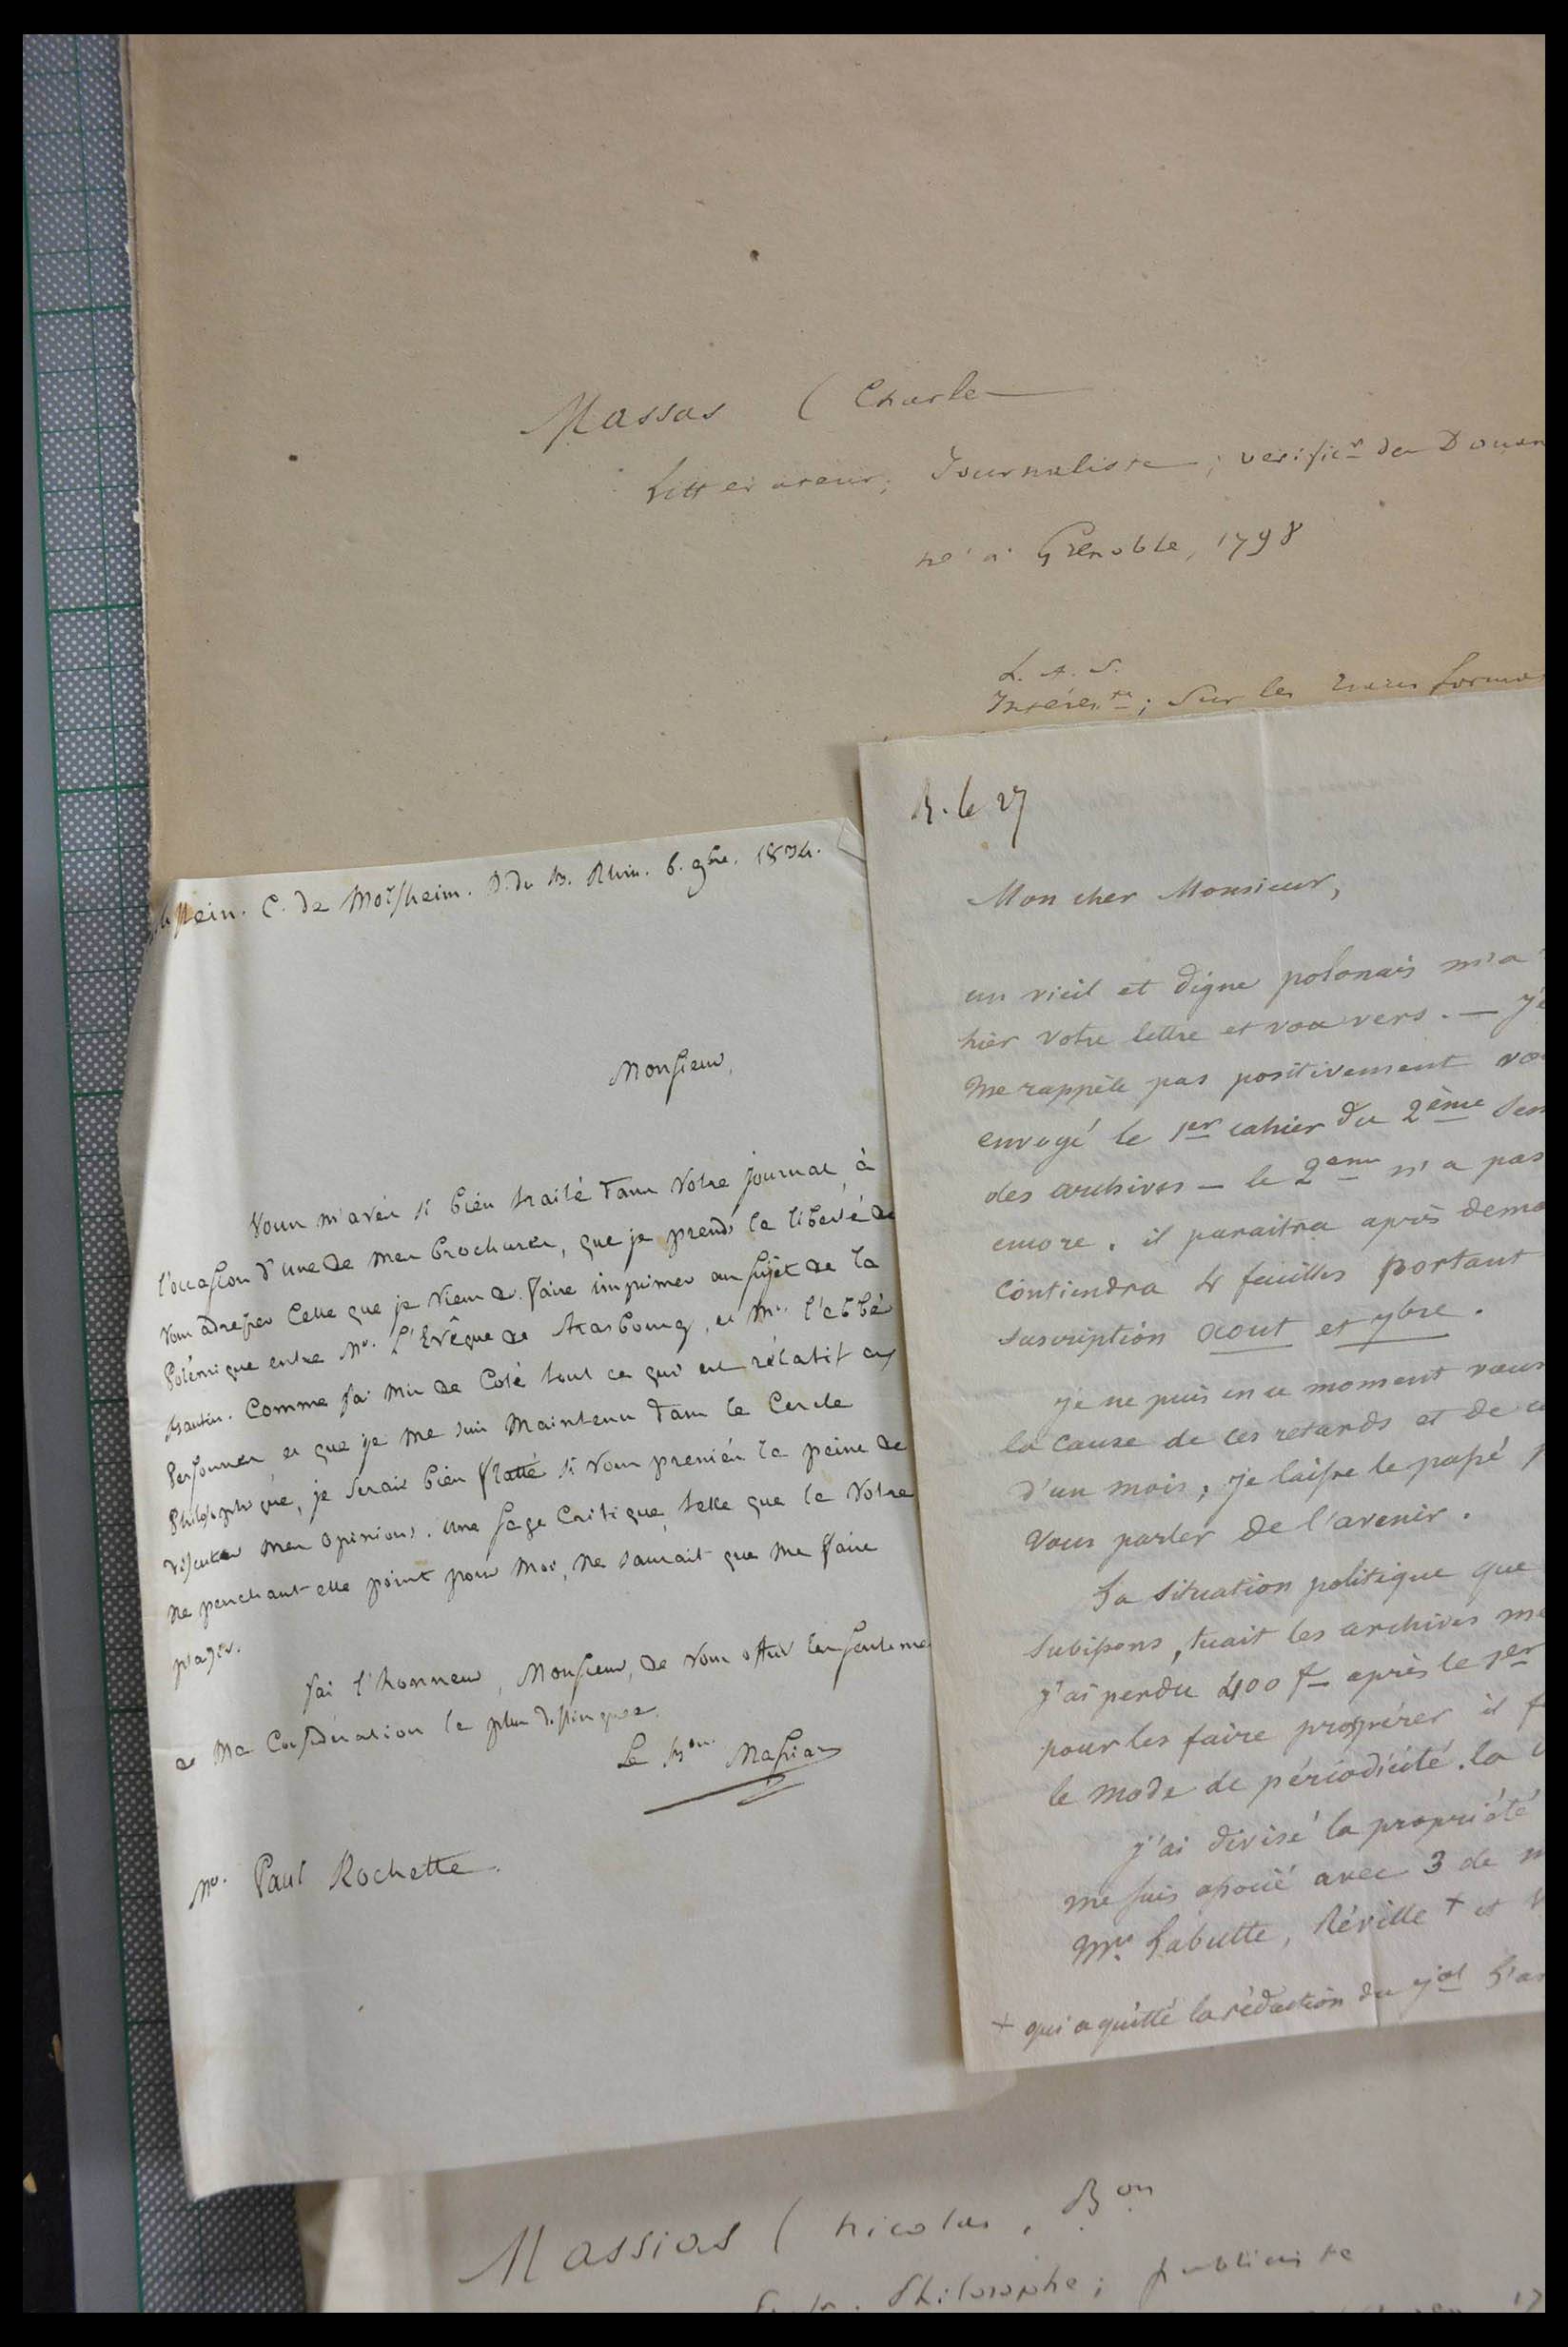 Massas ( Charle
Littérateur; Journaliste; vérific.r de Douan
né à Grenoble, 1798
L. A. S.
Intéres.te; Sur les formes
C. de Molsheim. D. du B. Rhin. 6. 9bre. 1834.
Monsieur,
Vous m'avés si bien traité dans votre journal, à
l'occasion d'une de mes brochures, que je prends la liberté de
vous adresser celle que je viens de faire imprimer au sujet de la
Polémique entre Mr. L'Evêque de Strasbourg, et Mr. l'abbé
Bautin. Comme j'ai mis de coté tout ce qui est rélatif aux
Personnes et que je me suis maintenu dans le Cercle
Philosophique, je serais bien flatté si vous preniés la peine de
discuter mes opinions. Une sage critique, telle que la votre
ne penchant elle point pour moi, ne saurait que me faire
J'ai l'honneur, Monsieur, de vous offrir les sentime
de ma Considération la plus distinguée.
Le Bon. Massias
Mr. Paul Rochette.
R. le 27
Mon cher Monsieur,
un vieil et digne polonais m'a
hier votre lettre et vos vers. — je
me rappèle pas positivement vo
envoyé le 1er cahier du 2ème Sem
des archives — le 2eme n'a pas
encore. il paraitra après dema
contiendra 4 feuilles portant
suscription aout et 7bre.
je ne puis en ce moment vous
la cause de ces retards et de ce
d'un mois, je laisse le passé p
vous parler de l'avenir.
La situation politique que
subissons, tuait les archives me
j'ai perdu 400 f après le 1er
pour les faire prospérer il f
le mode de périodicité. la
j'ai divisé la propriété
me suis associé avec 3 de m
Mrs Labutte, Réville + et
+ qui a quitté la rédaction du jal L'a
Massias ( Nicolas, Bon
Philosophe; publiciste